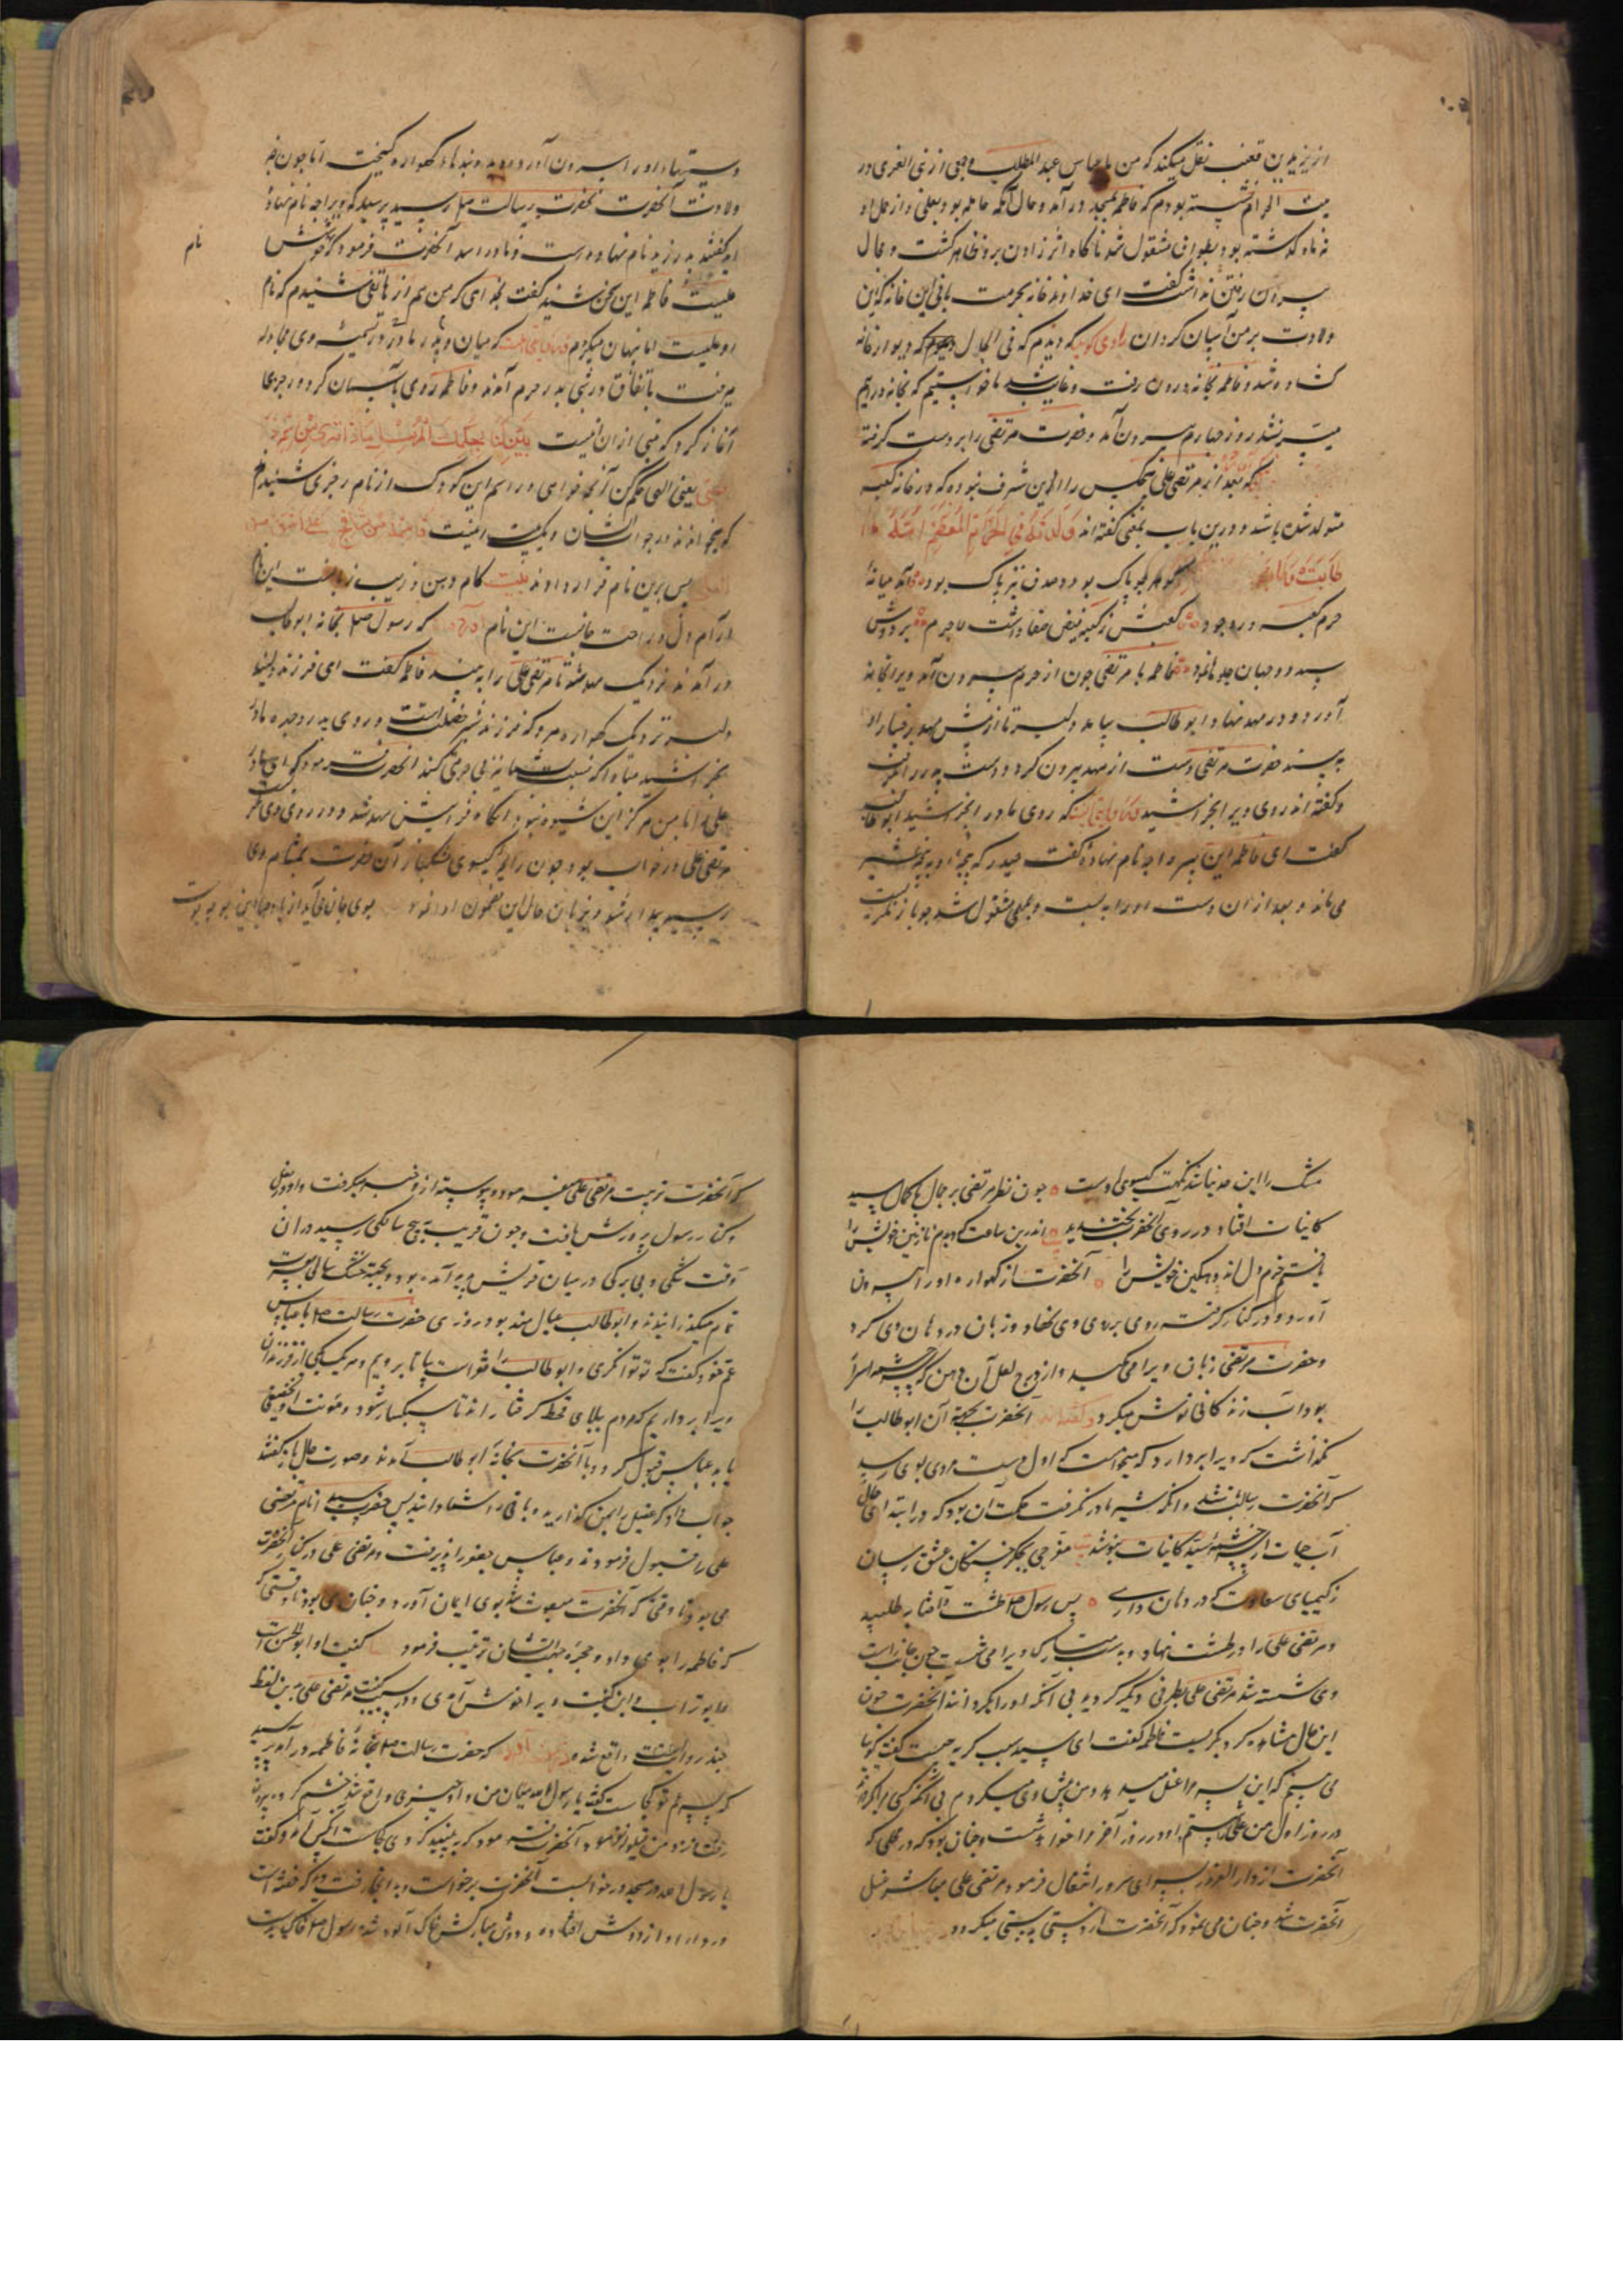 از یزید بن قعنب نقل میکند که من با عباس عبد المطلب و جمعی از بنی العزی در
بیت الحرام نشسته بودم که فاطمه بمسجد در آمد و حال آنکه حامله بود بعلی و از حمل او
نه ماه گذشته بود بطواف مشغول شد ناکاه اثر زادن برو ظاهر کشت و مجال
بیرون رفتن نداشت گفت ای خداوند خانه بحرمت بانی این خانه که این
ولادت بر من آسان کردان راوی کوید که دیدم که فی الحال که دیوار خانه
کشاده شد و فاطمه بخانه درون رفت و غایب شد ما خواستیم که بخانه در ایم
میسر نشد روز چهارم بیرون آمد و حضرت مرتضی را بر دست گرفته
که بعد از مرتضی علی هیچکس را این شرف نبوده که در خانه کعبه
متولد شده باشد و درین باب بعضی گفته اند
کوهر چو پاک بود و صدف نیز پاک بود آمد میانه
حرم کعبه در وجود کعبش ز کعبه فیض صفا داشت لاجرم بر دوش
سید دو جهان جلوه نمود فاطمه با مرتضی چون از حرم بیرون آمد ویرا بخانه
آورد و در مهد نهاد ابو طالب بیامد دلیر تا از پیش مهد رخسار او
به بیند حضرت مرتضی دست از مهد بیرون کرد و دست پدر را گرفت
و گفته اند روی ویرا بخراشید که روی مادر را بخراشید ابو طالب
گفت ای فاطمه این پسر را چه نام نهاده گفت حیدر که پنجه او به پنجه شیر
می ماند و بعد از ان دست او را به بست و بعملی مشغول شد چون باز نکریست
دستها را بیرون آورده بود و بندهاء کهواره کسیخت اما چون خبر
ولادت آنحضرت بحضرت رسالت صلم رسید پرسید که ویرا چه نام نهاده
اند گفتند پدر زید نام نهاد و مادر اسد آنحضرت فرمود که نامش
نام
علیست فاطمه این سخن شنید گفت بخدای که من هم از هاتفی شنیدم که نام
او علیست اما پنهان میکردم که میان پدر و مادر در تسمیه وی مجادله
میرفت باتفاق در شبی بدر حرم آمدند و فاطمه روی بآسمان کرد و رجزی
آغاز کرد که بیتی از ان اینست
یعنی الهی حکم کن آنچه خواهی در اسم این کودک از نام رجزی شنیدم
که بخواندند در جواب ایشان و یکبیت اینست
پس برین نام قرار دادند بیت کام دهن و زیب زبانست این نام
آرام دل و راحت جانست این نام که رسول صلم بخانه ابو طالب
در آمدند نزدیک مهد شد تا مرتضی علی را به بیند فاطمه گفت ای فرزند دلبند
دلیر نزدیک کهواره مرو که فرزند شیر خصلت است و روی پدر و چهره مادر
بخراشید مبادا که نسبت بشما نیز بی حرمتی کند آنحضرت فرمود که ای مادر
علی را با من هرگز این شیوه نبود انکاه فرا پیش مهد شد و در روی وی نگریست
مرتضی علی در خواب بود چون رایحه گیسوی مشکبار آن حضرت بمشام وی
رسید بیدار شد و بزبان حال این مضمون ادا نمود بوی جان می آید از باد صبا این بو چه بوست
مشک را این حد نباشد نکهت گیسوی اوست چون نظر مرتضی بر جمال با کمال سید
کاینات افتاد در روی آنحضرت بخندید اندرین ساعت که دیدم نازنین خویش را
یافتم خرم دل اندوهکین خویش را آنحضرت از کهواره او را بیرون
آورد و در کنار گرفت روی بر روی وی نهاد و زبان در دهان وی کرد
و حضرت مرتضی زبان ویرا می مکید و از درج لعل آن دهن که چشمه اسرار
بود آب زندکانی نوش میکرد و گفته اند آنحضرت بجهة آن ابو طالب را
نکذاشت که ویرا بردارد که میخواست که اول دست مردی بوی رسید
که آنحضرت رسالت باشد و انکه شیر مادر نگرفت حکمت آن بود که در ابتدای حال
آب حیات از چشمه سید کاینات بنوشد مفرحی بجکر خستکان عشق رسان
ز کیمیای سعادت که در دهان داری پس رسول صلم طشت و آفتابه طلبید
و مرتضی علی را در طشت نهاد و بدست مبارک ویرا می شست چون جانب راست
وی شسته شد مرتضی علی بطرف دیگر گردید بی آنکه او را بگرداند آنحضرت چون
این حال مشاهده کرد بگریست فاطمه گفت ای سید سبب گریه چیست گفت گوئیا
می بینم که این پسر مرا غسل میدهد و من پیش وی میگردم بی آنکه کسی مرا بگرداند
در روز اول من علی را شستم او در روز آخر مرا خواهد شست و چنان بود که در محلی که
آنحضرت از دار الغرور بسرای سرور انتقال فرمود مرتضی علی مباشر غسل
آنحضرت شد و چنان می نمود که آنحضرت از دستی بدستی میکردد
که آنحضرت تربیت مرتضی علی بنفسه میفرمود و پیوسته از وخبر میکرفت و او در بغل
و کنار رسول پرورش یافت و چون قریب به پنج سالکی رسید در ان
وقت تنگی و بی برکی در میان قریش پدید آمده بود و بجهة خشک سالی بعسرت
تمام میکذرانیدند و ابو طالب عیال مند بود روزی حضرت رسالت صلم با عباس
عم خود گفت که تو توانکری و ابو طالب را فقر است بیا تا برویم و هر یک یکی از فرزندان
ویرا برداریم که مردم ببلای قحط گرفتار اند تا سبکبار شود و مونت او تخفیف
یابد عباس قبول کرد و با آنحضرت بخانه ابو طالب آمدند و صورت حال باز گفتند
جواب داد که عقیل را بمن گذارید و باقی را شما دانید پس حضرت سید انام مرتضی
علی را قبول فرمودند و عباس جعفر را پذیرفت و مرتضی علی در کنار آنحضرت
می بود تا وقتی که آنحضرت مبعوث شد بوی ایمان آورد و چنان می بود تا وقتی که
که فاطمه را بوی داد و حجره جهة ایشان ترتیب فرمود کنیت او ابو الحسن است
و ابو تراب و این کنیت ویرا خوش آمدی و در سبب کنیت مرتضی علی بدین لفظ
چند روایت واقع شده که حضرت رسالت صلم بخانه فاطمه در آمد پرسید
که پسر عم تو کجاست گفت یا رسول الله میان من و او چیزی واقع شد خشم کرد بیرون
رفت نزد من قیلوله نفرمود آنحضرت فرمود که به بینید که وی کجاست آنکس آمد و گفت
یا رسول الله در مسجد در خوابست آنحضرت برخواست و به انجا رفت دید که خفته است
و رداء او از دوش افتاده و دوش مبارکش خاک آلود شده رسول صلم خاک پاک بدست